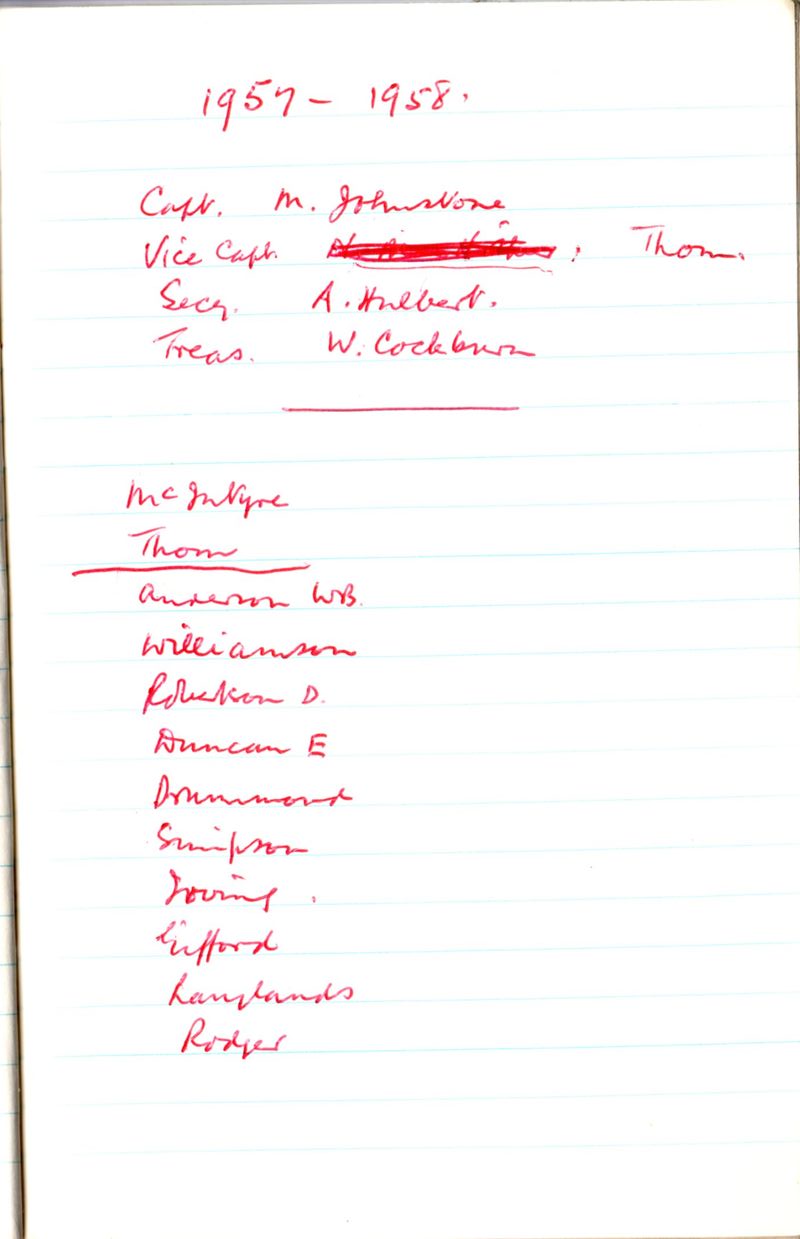 1957 - 1958.
Capt. M. Johnstone
Vice Capt. ; Thom.
Secy. A. Hulbert.
Treas. W. Cockburn
McIntyre
Thom
Anderson WB.
Williamson
Robertson D.
Duncan E
Drummond
Simpson
Irving .
Gifford
Langlands
Rodger